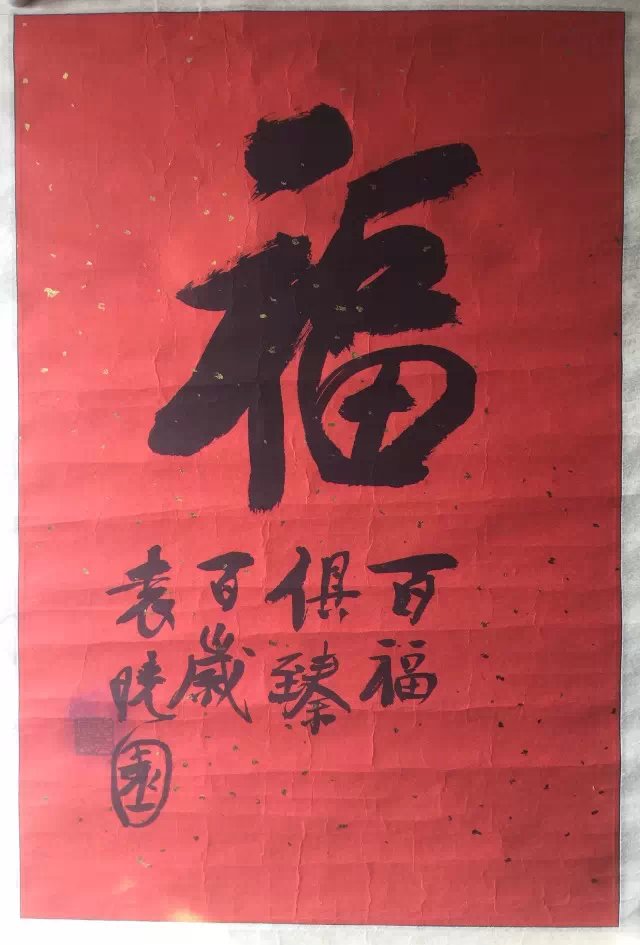 福
百福
俱臻
百歲
袁曉園